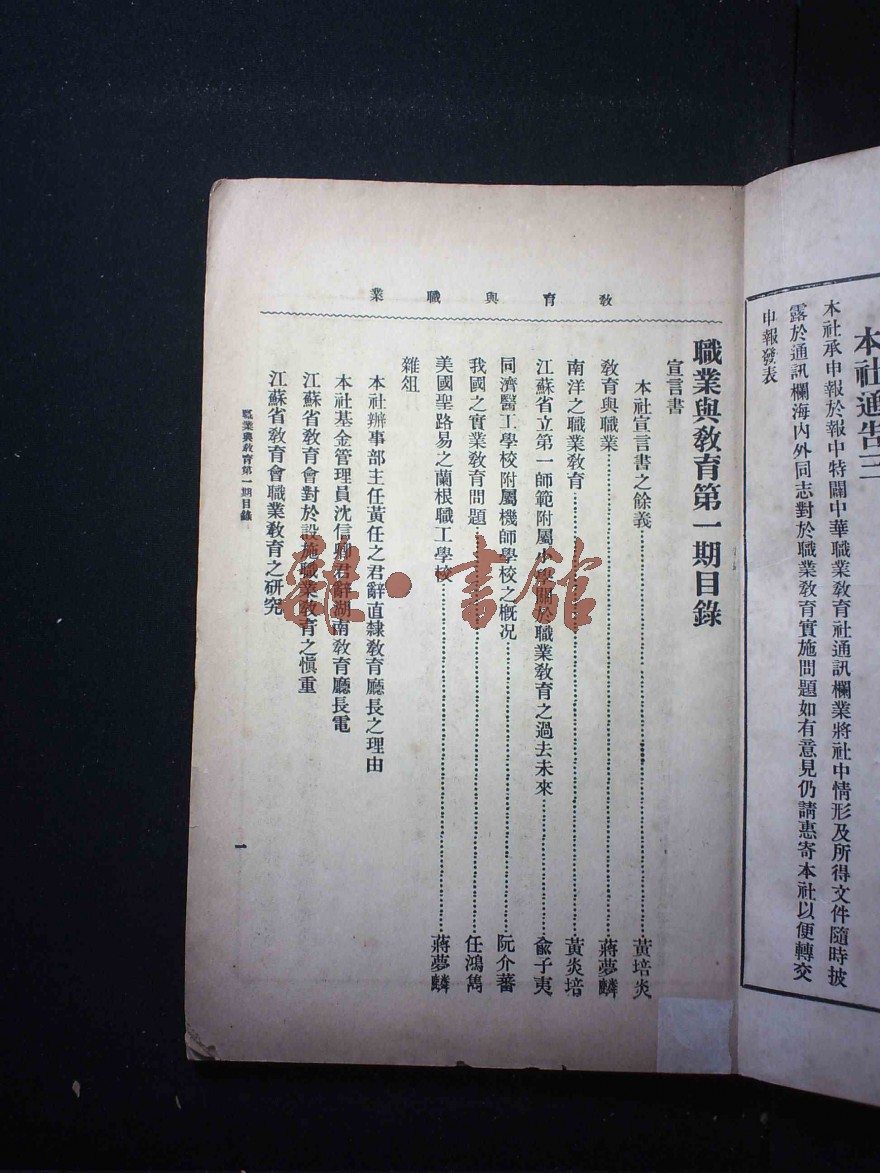 本社通告三
本社承申報於報中特闢中華職業教育社通訊欄業將社中情形及所得文件隨時披
露於通訊欄海內外同志對於職業教育實施問題如有意見仍請惠寄本社以便轉交
申報發表
教育與職業
職業與教育第一期目錄
宣言書
本社宣言書之餘義……黃培炎
教育與職業……蔣夢麟
南洋之職業教育……黃炎培
江蘇省立第一師範附屬小學關於職業教育之過去未來……俞子夷
同濟醫工學校附屬機師學校之概況……阮介蕃
我國之實業教育問題……任鴻雋
美國聖路易之蘭根職工學校……蔣夢麟
雜俎
本社辦事部主任黃任之君辭直隸教育廳長之理由
本社基金管理員沈信卿君辭湖南教育廳長電
江蘇省教育會對於設施職業教育之慎重
江蘇省教育會職業教育之研究
職業與教育第一期目錄
一
雜·書館